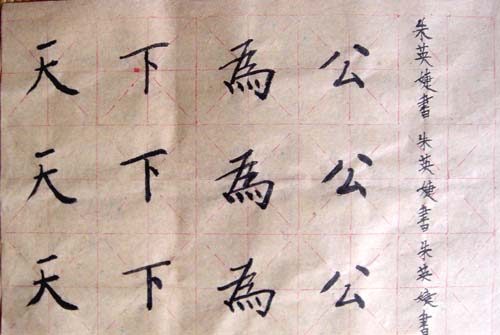 天下為公
朱英婕書
天下為公
朱英婕書
天下為公
朱英婕書